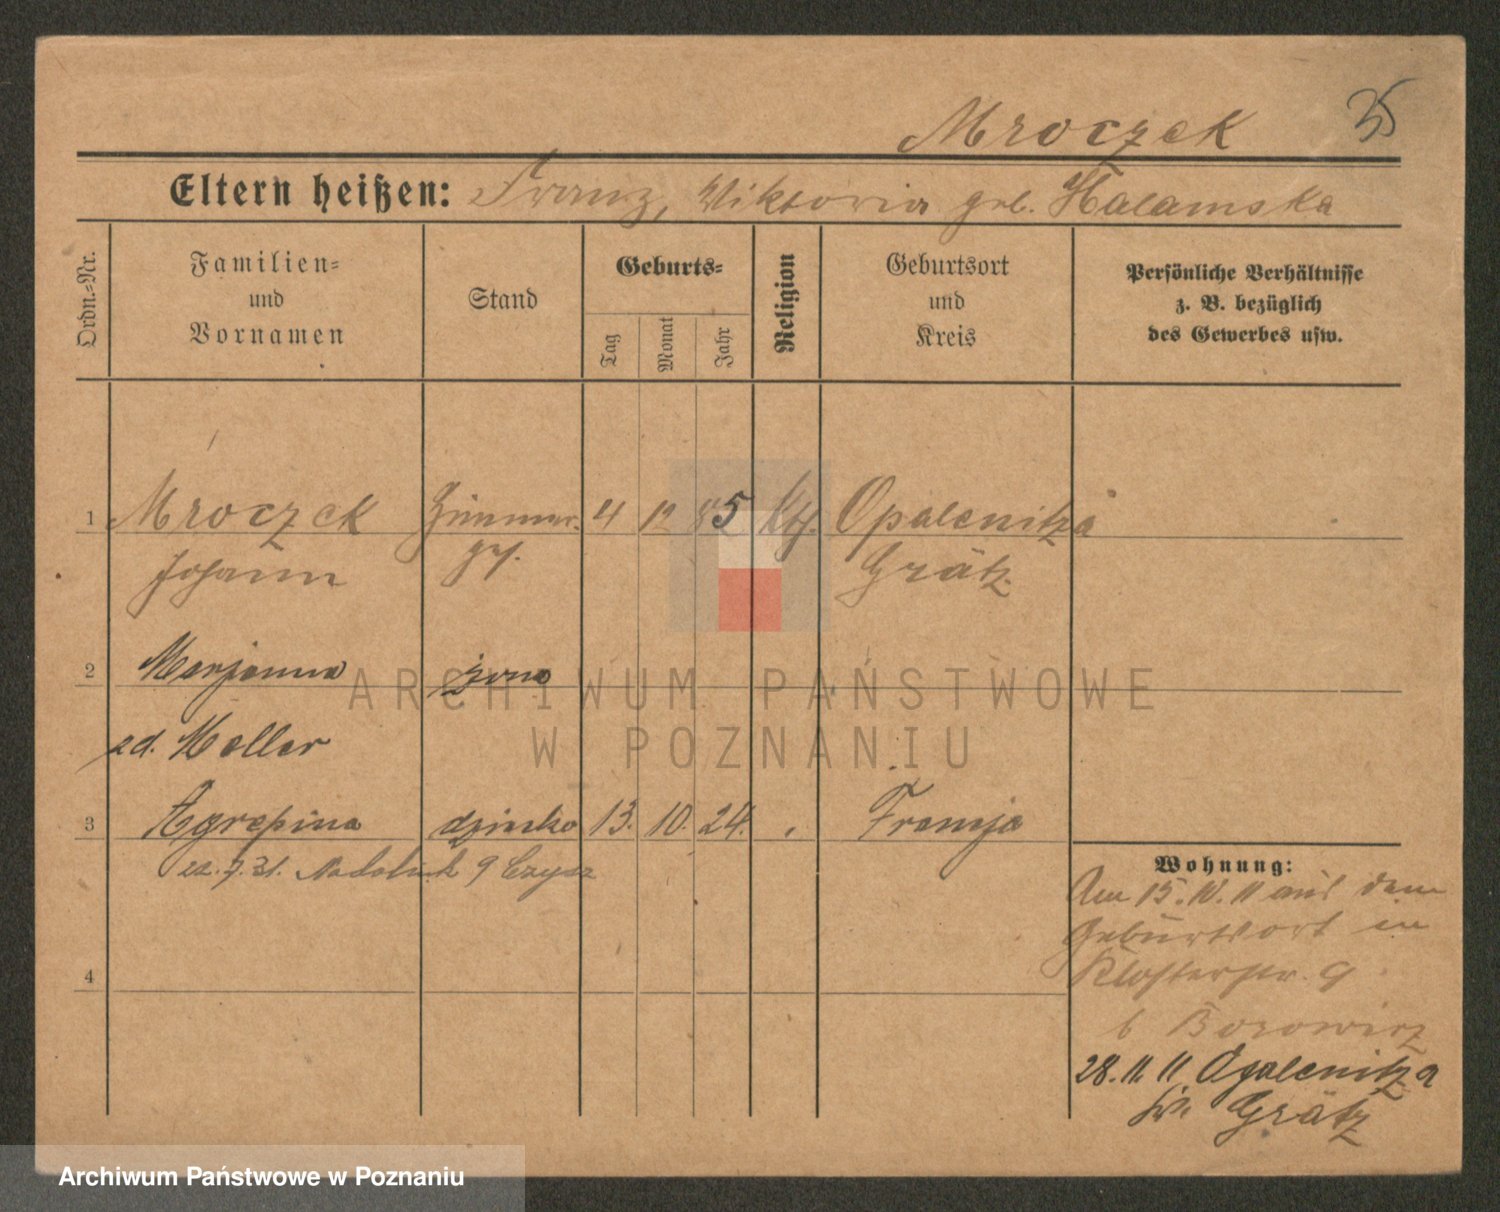 Mroczek 35
Eltern heißen: Franz, Wiktoria geb. Halamska
Ordn.-Nr.
Familien- und Vornamen
Stand
Geburts-
Tag
Monat
Jahr
Religion
Geburtsort und Kreis
Persönliche Verhältnisse
z. B. bezüglich
des Gewerbes usw.
1 Mroczek Zimmer- 4 12 85 kth. Opalenitza
Johann ges. Grätz
2 Marjanna żona
zd. Heller
3 Agrepina dziecko 13. 10. 24. Francja
22.7.31. 9
4
Wohnung:
Am 15.10.11 aus dem
Geburtsort in
Klosterstr. 9
b
28.11.11 Opalenitza
Kr. Grätz
ARCHIWUM PAŃSTWOWE
W POZNANIU
Archiwum Państwowe w Poznaniu